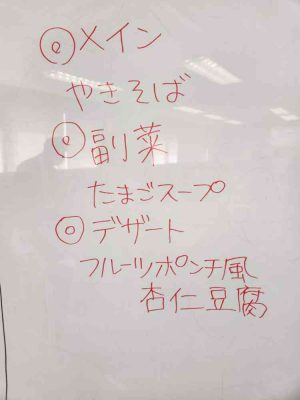 ◎メイン
やきそば
◎副菜
たまごスープ
◎デザート
フルーツポンチ風
杏仁豆腐